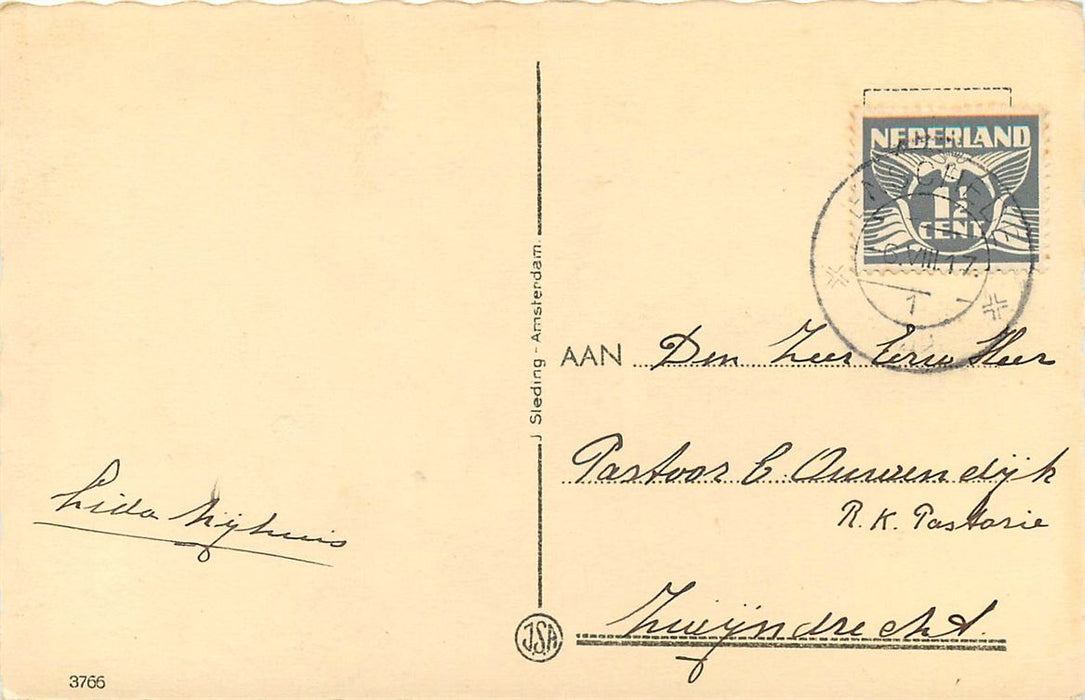 NEDERLAND
1½
CENT
ENSCHEDE
6.VIII.17.
1
AAN Den Zeer Eerw Heer
Pastoor C. Ouwendijk
R. K. Pastorie
Zwijndrecht.
Lida Nijhuis
J Sleding - Amsterdam.
J.S.A
3766